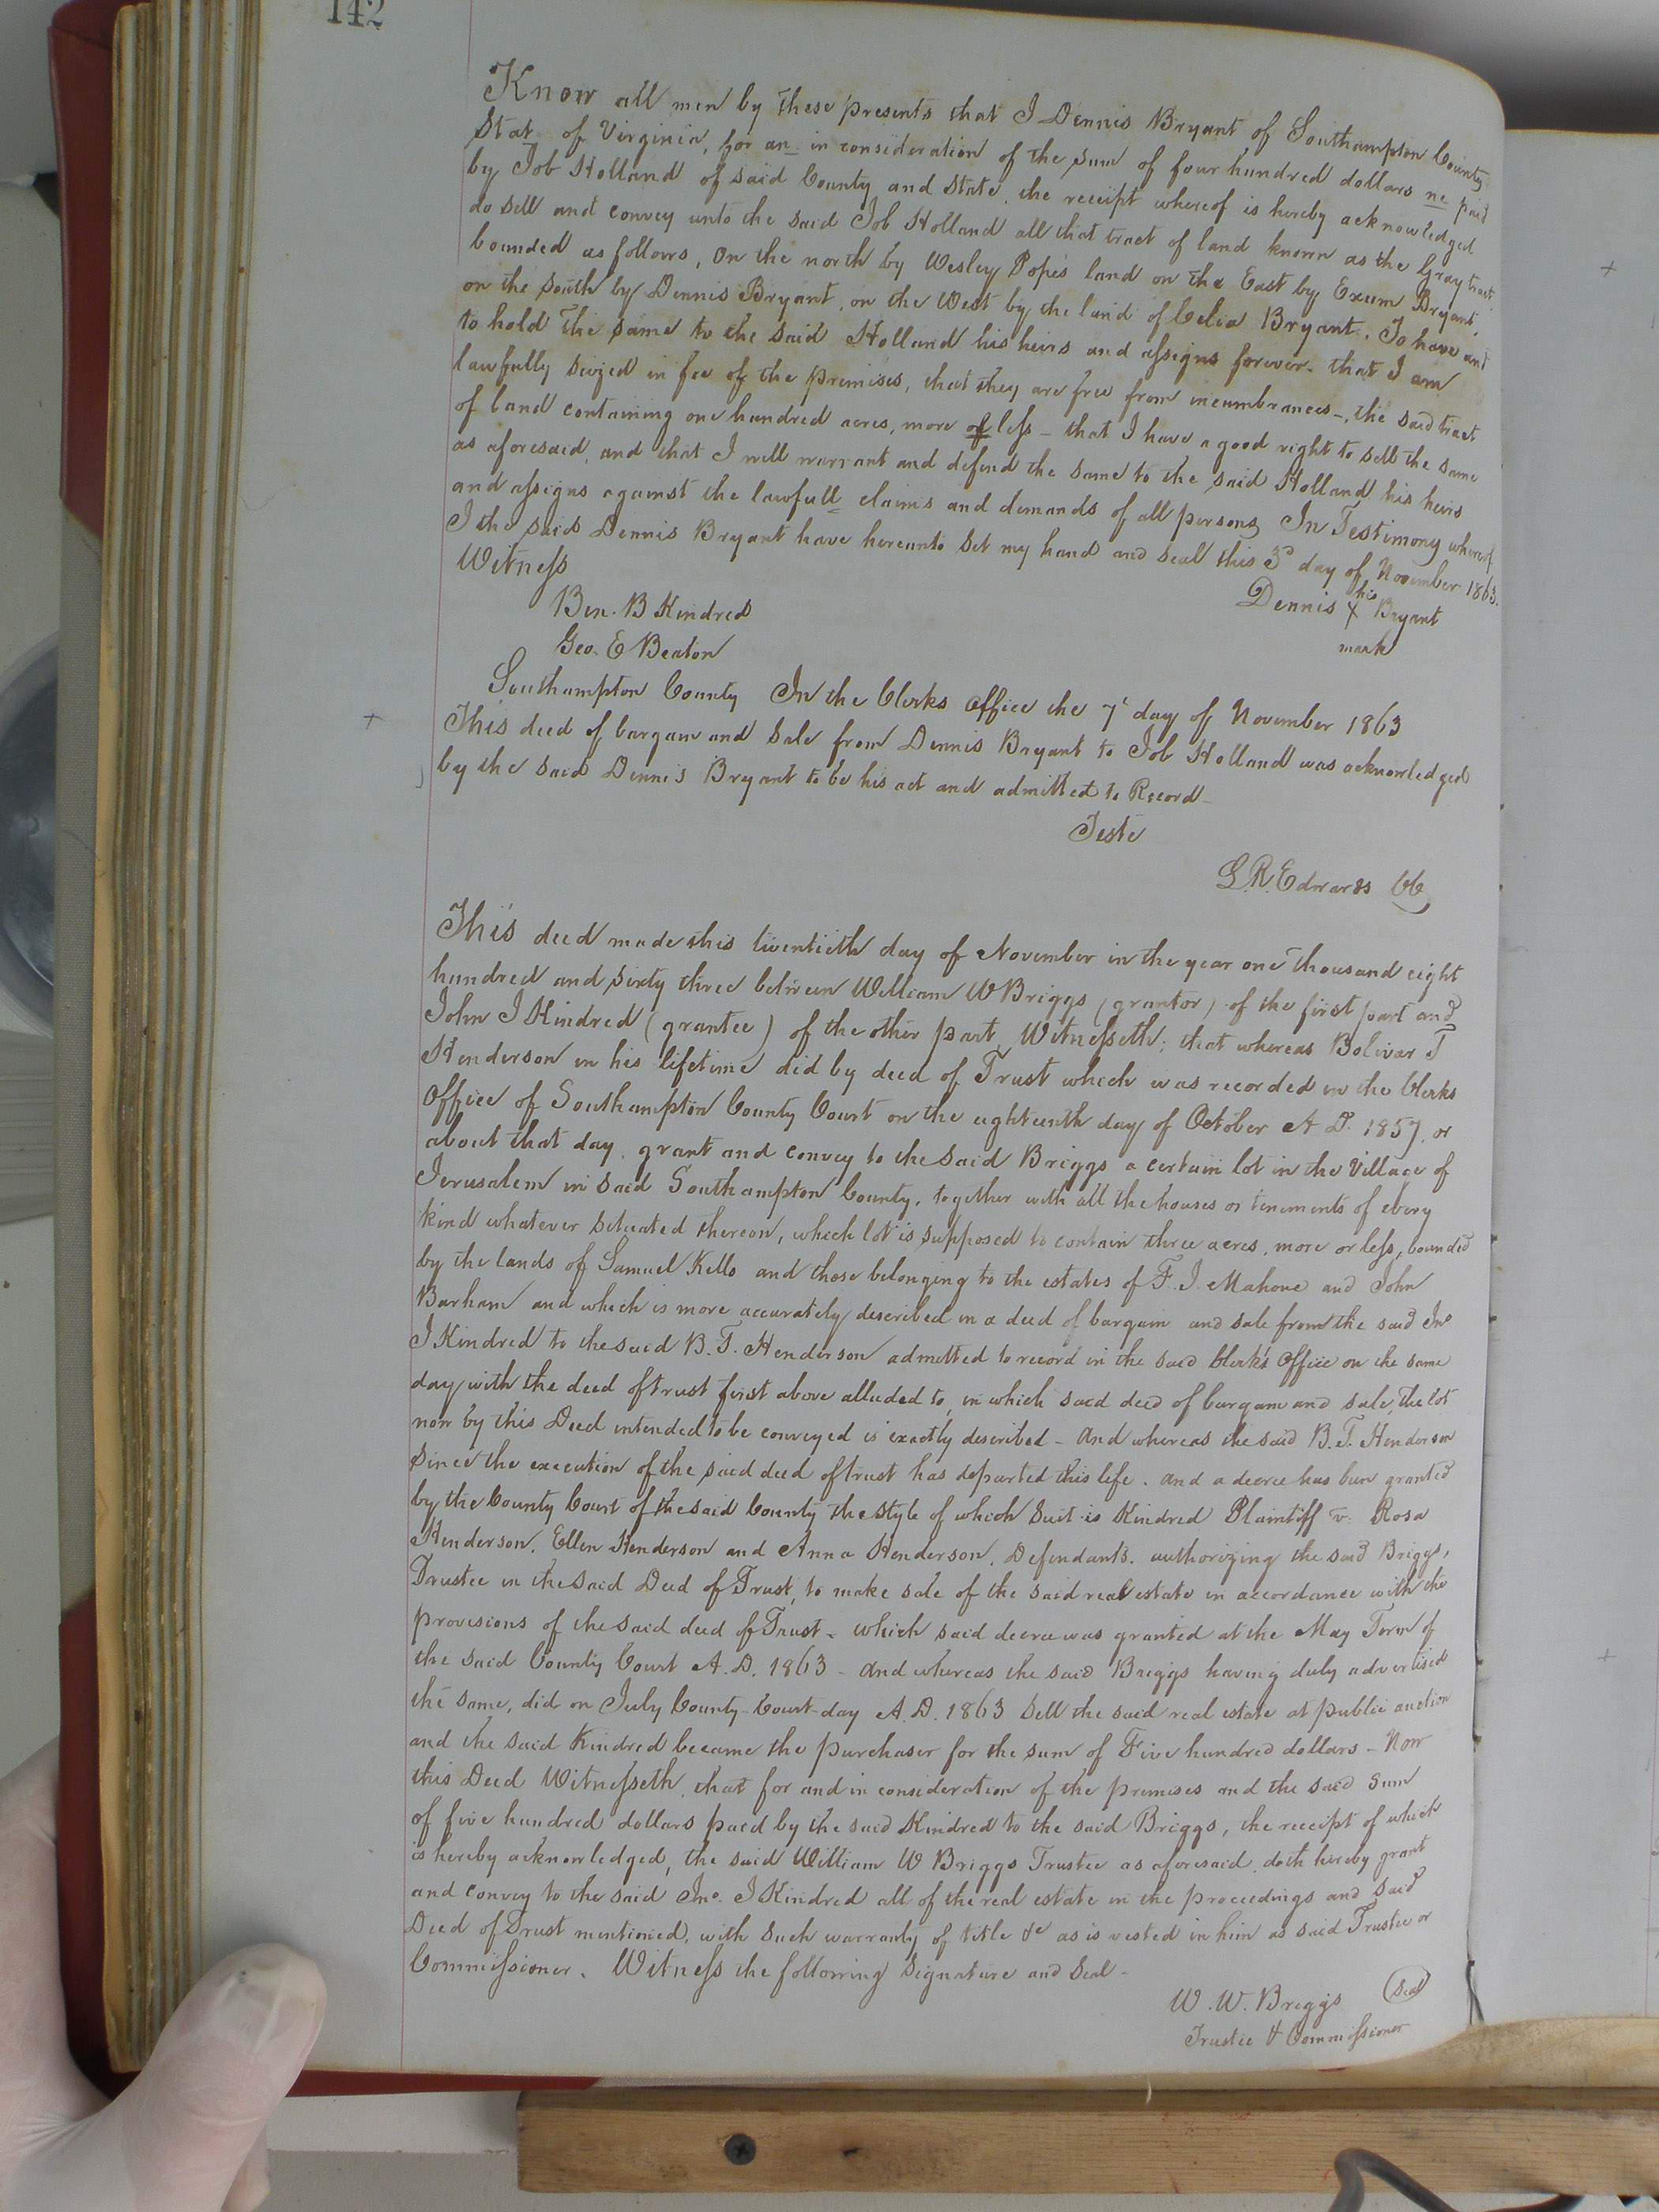 142
Know all men by these presents that I Dennis Bryant of Southampton County
Stat of Virginia, for an in consideration of the sum of four hundred dollars ne paid
by Job Holland of said County and State, the receipt whereof is hereby acknowledged
do sell and convey unto the said Job Holland all that tract of land known as the Gray tract
bounded as follows, On the north by Wesley Pope's land on the East by Exum Bryant,
on the South by Dennis Bryant, on the West by the land of Celia Bryant. To have and
to hold the same to the said Holland his heirs and assigns forever. that I am
lawfully seized in fee of the premises, that they are free from incumbrances -, the said tract
of land containing one hundred acres, more or less - that I have a good right to sell the same
as aforesaid, and that I will warrant and defend the same to the said Holland his heirs
and assigns against the lawfull claims and demands of all persons In Testimony whereof
I the said Dennis Bryant have hereunto set my hand and seal this 3d day of November 1863.
Witness
Dennis his X Bryant
mark
Ben. B Kindred
Geo. E Beaton
Southampton County In the Clerks office the 7t day of November 1863
This deed of bargain and sale from Dennis Bryant to Job Holland was acknowledged
by the said Dennis Bryant to be his act and admitted to Record -
Teste
L. R. Edwards CC
This deed made this twentieth day of November in the year one thousand eight
hundred and sixty three between William W Briggs (grantor) of the first part and
John J Kindred (grantee) of the other part, Witnesseth; that whereas Bolivar T
Henderson in his lifetime did by deed of Trust which was recorded in the Clerks
Office of Southampton County Court on the eighteenth day of October A D. 1857, or
about that day, grant and convey to the said Briggs a certain lot in the Village of
Jerusalem in said Southampton County, together with all the houses or tenements of every
kind whatever situated thereon, which lot is supposed to contain three acres, more or less, bounded
by the lands of Samuel Kello and those belonging to the estates of F. J. Mahone and John
Barham and which is more accurately described in a deed of bargain and sale from the said Jno
J Kindred to the said B. T. Henderson admitted to record in the said Clerk's Office on the same
day with the deed of trust first above alluded to, in which said deed of bargain and sale, the lot
now by this Deed intended to be conveyed is exactly described - And whereas the said B. T. Henderson
since the execution of the said deed of trust has departed this life. and a decree has been granted
by the County Court of the said County the style of which Suit is Kindred Plaintiff v. Rosa
Henderson, Ellen Henderson and Anna Henderson, Defendants. authorizing the said Briggs,
Trustee in the said Deed of Trust, to make sale of the said real estate in accordance with the
provisions of the said deed of Trust - which said decree was granted at the May Term of
the said County Court A. D. 1863 - And whereas the said Briggs having duly advertised
the same, did on July County-Court-day A. D. 1863 Sell the said real estate at public auction
and the said Kindred became the purchaser for the sum of Five hundred dollars - Now
this Deed Witnesseth, that for and in consideration of the premises and the said sum
of five hundred dollars paid by the said Kindred to the said Briggs, the receipt of which
is hereby acknowledged, the said William W Briggs Trustee as aforesaid, doth hereby grant
and convey to the said Jno. J Kindred all of the real estate in the proceedings and said
Deed of Trust mentioned, with such warranty of title &c as is vested in him as said Trustee or
Commissioner. Witness the following signature and Seal -
W. W. Briggs Seal
Trustee & Commissioner